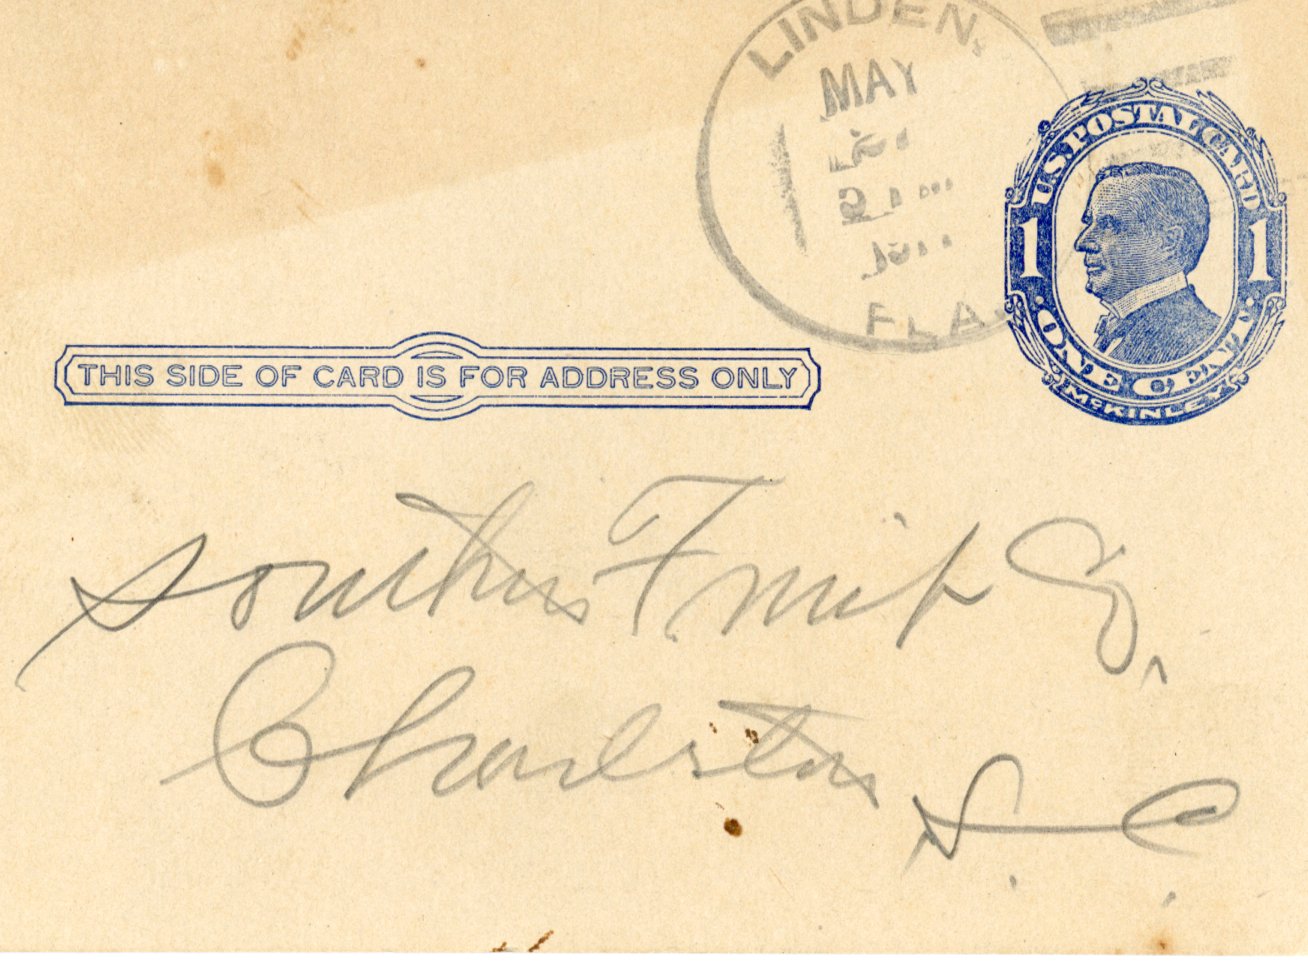 LINDEN,
MAY
FLA.
U.S. POSTAL CARD
1 1
ONE CENT
McKINLEY
THIS SIDE OF CARD IS FOR ADDRESS ONLY
Southern Fruit Co,
Charleston
S. C.